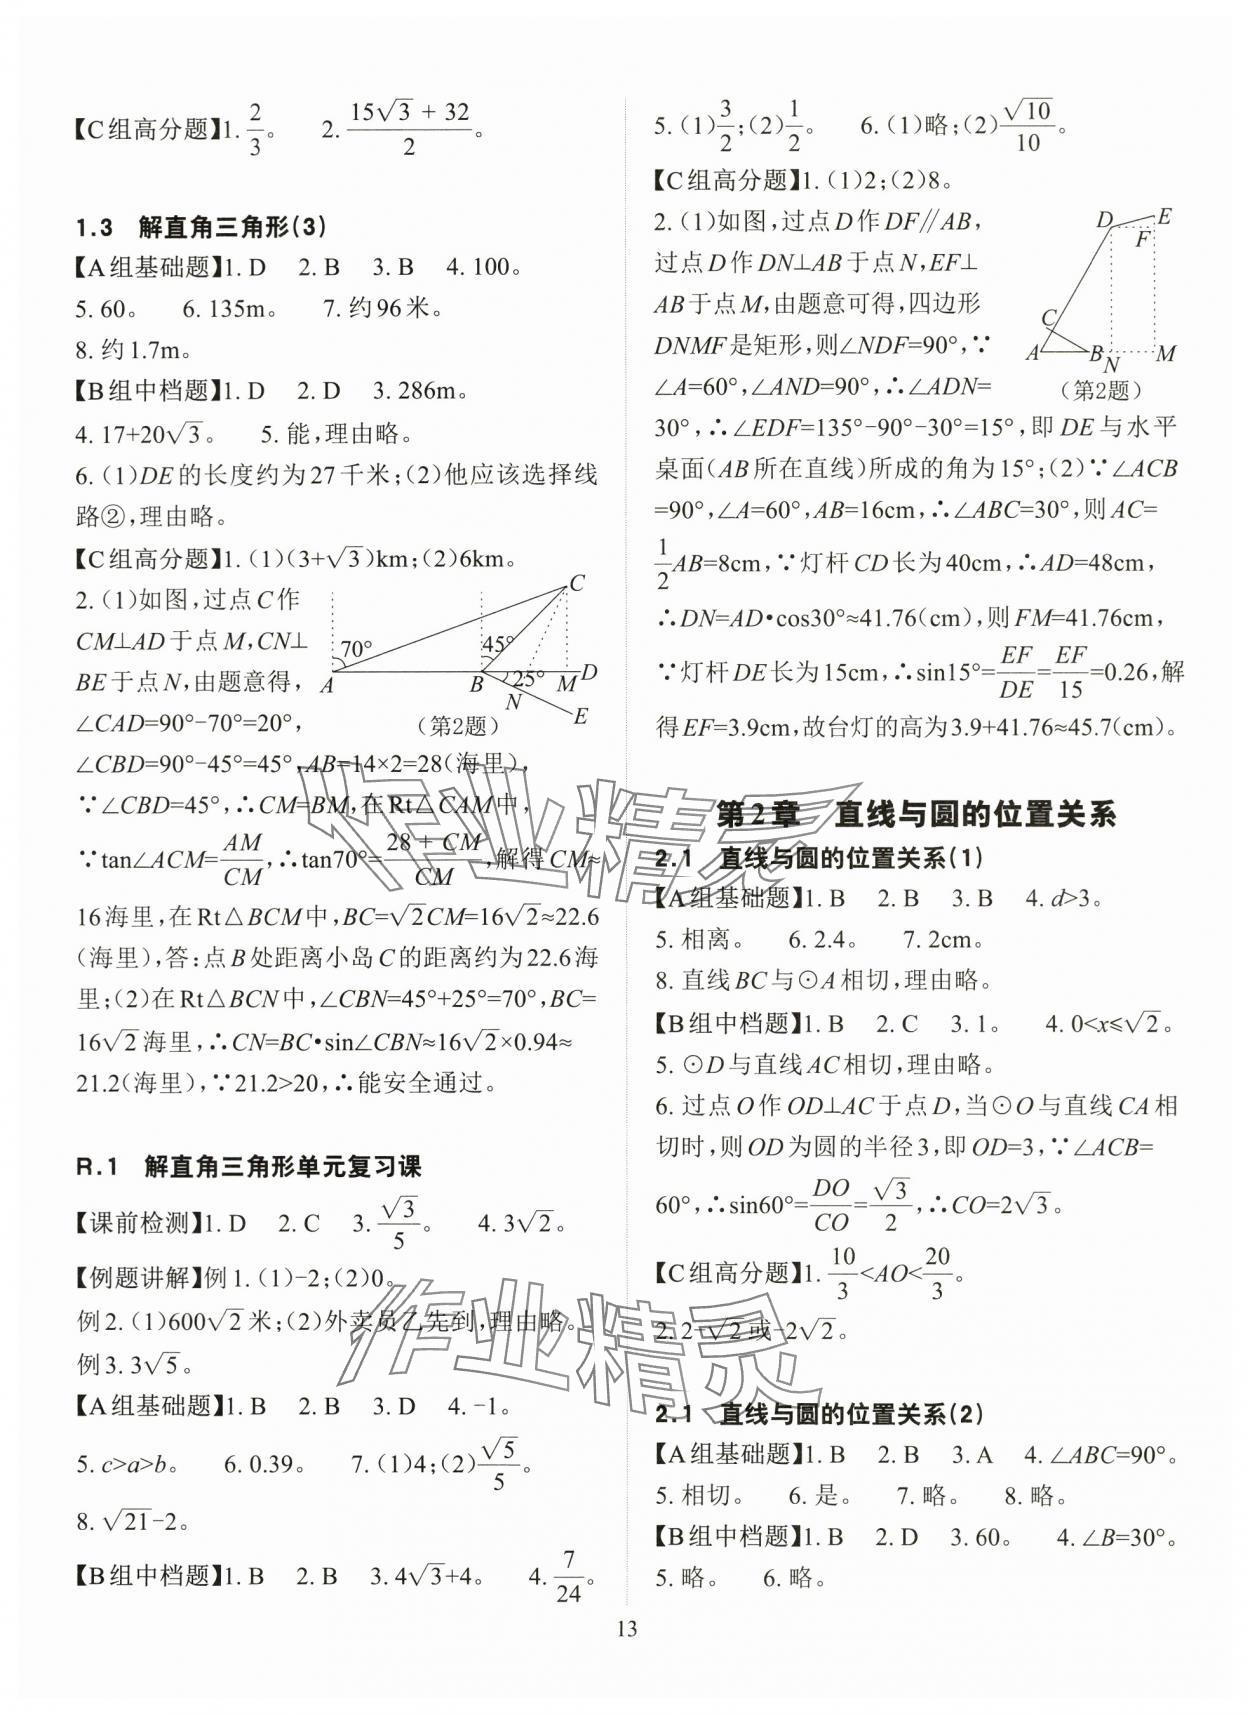 【C组高分题】1. 2/3。 2. (15√3 + 32)/2。
1.3 解直角三角形(3)
【A组基础题】1. D 2. B 3. B 4. 100。
5. 60。 6. 135m。 7. 约96米。
8. 约1.7m。
【B组中档题】1. D 2. D 3. 286m。
4. 17+20√3。 5. 能,理由略。
6. (1)DE的长度约为27千米;(2)他应该选择线
路②,理由略。
【C组高分题】1. (1)(3+√3)km;(2)6km。
2. (1)如图,过点C作
CM⊥AD于点M,CN⊥
BE于点N,由题意得,
∠CAD=90°-70°=20°,
C
70°
45°
25°
A
B
M
D
N
E
(第2题)
∠CBD=90°-45°=45°,AB=14×2=28(海里),
∵∠CBD=45°,∴CM=BM,在Rt△CAM中,
∵tan∠ACM=AM/CM,∴tan70°=(28 + CM)/CM,解得CM≈
16海里,在Rt△BCM中,BC=√2CM=16√2≈22.6
(海里),答:点B处距离小岛C的距离约为22.6海
里;(2)在Rt△BCN中,∠CBN=45°+25°=70°,BC=
16√2海里,∴CN=BC•sin∠CBN≈16√2×0.94≈
21.2(海里),∵21.2>20,∴能安全通过。
R.1 解直角三角形单元复习课
【课前检测】1. D 2. C 3. √3/5。 4. 3√2。
【例题讲解】例1. (1)-2;(2)0。
例2. (1)600√2米;(2)外卖员乙先到,理由略。
例3. 3√5。
【A组基础题】1. B 2. B 3. D 4. -1。
5. c>a>b。 6. 0.39。 7. (1)4;(2)√5/5。
8. √21-2。
【B组中档题】1. B 2. B 3. 4√3+4。 4. 7/24。
5. (1)3/2;(2)1/2。 6. (1)略;(2)√10/10。
【C组高分题】1. (1)2;(2)8。
2. (1)如图,过点D作DF∥AB,
过点D作DN⊥AB于点N,EF⊥
AB于点M,由题意可得,四边形
DNMF是矩形,则∠NDF=90°,∵
∠A=60°,∠AND=90°,∴∠ADN=
D
E
F
C
A
B
N
M
(第2题)
30°,∴∠EDF=135°-90°-30°=15°,即DE与水平
桌面(AB所在直线)所成的角为15°;(2)∵∠ACB
=90°,∠A=60°,AB=16cm,∴∠ABC=30°,则AC=
1/2AB=8cm,∵灯杆CD长为40cm,∴AD=48cm,
∴DN=AD•cos30°≈41.76(cm),则FM=41.76cm,
∵灯杆DE长为15cm,∴sin15°=EF/DE=EF/15=0.26,解
得EF=3.9cm,故台灯的高为3.9+41.76≈45.7(cm)。
第2章 直线与圆的位置关系
2.1 直线与圆的位置关系(1)
【A组基础题】1. B 2. B 3. B 4. d>3。
5. 相离。 6. 2.4。 7. 2cm。
8. 直线BC与⊙A相切,理由略。
【B组中档题】1. B 2. C 3. 1。 4. 0<x≤√2。
5. ⊙D与直线AC相切,理由略。
6. 过点O作OD⊥AC于点D,当⊙O与直线CA相
切时,则OD为圆的半径3,即OD=3,∵∠ACB=
60°,∴sin60°=DO/CO=√3/2,∴CO=2√3。
【C组高分题】1. 10/3<AO<20/3。
2. 2-√2或-2√2。
2.1 直线与圆的位置关系(2)
【A组基础题】1. B 2. B 3. A 4. ∠ABC=90°。
5. 相切。 6. 是。 7. 略。 8. 略。
【B组中档题】1. B 2. D 3. 60。 4. ∠B=30°。
5. 略。 6. 略。
13
作业精灵
作业精灵